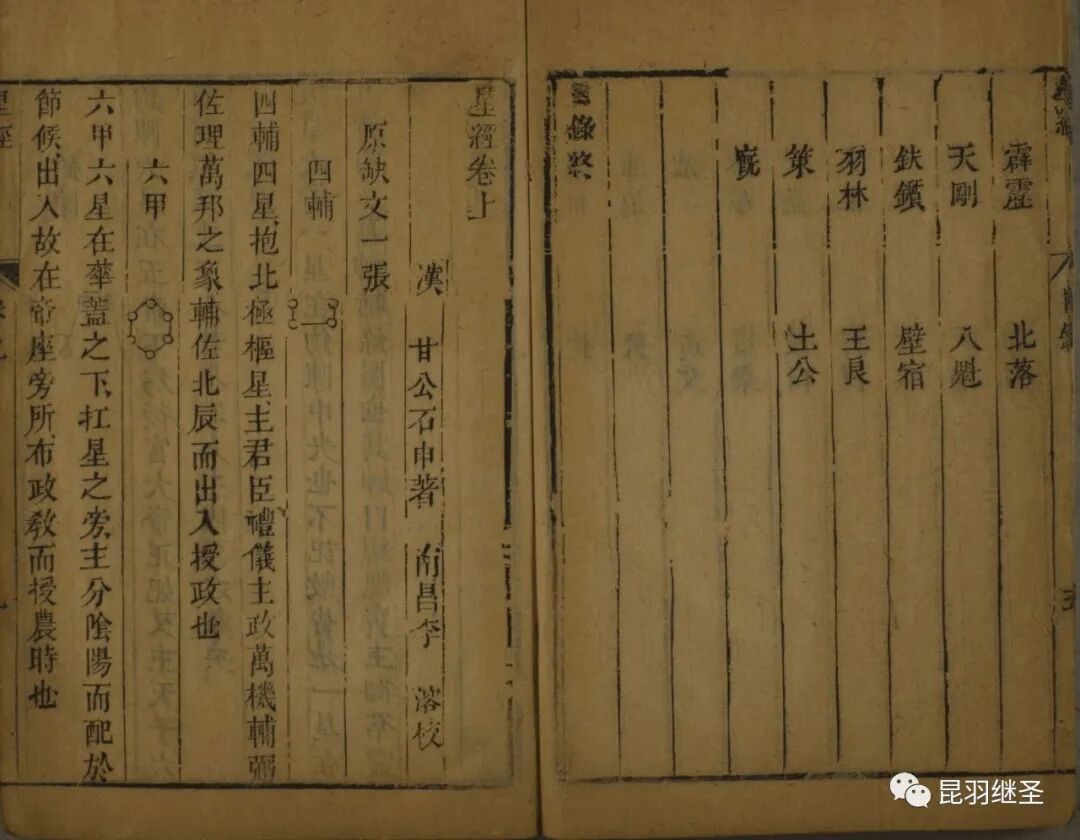 霹靂 北落
天剛 八魁
鈇鑕 壁宿
羽林 王良
策 土公
廐
目錄終
星經卷上
漢 甘公石申著 南昌李 溶校
原缺文一張
四輔
四輔四星抱北極樞星主君臣禮儀主政萬機輔弼
佐理萬邦之象輔佐北辰而出入授政也
六甲
六甲六星在華蓋之下扛星之旁主分陰陽而配於
節候出入故在帝座旁所布政教而授農時也
星經
昆羽继圣